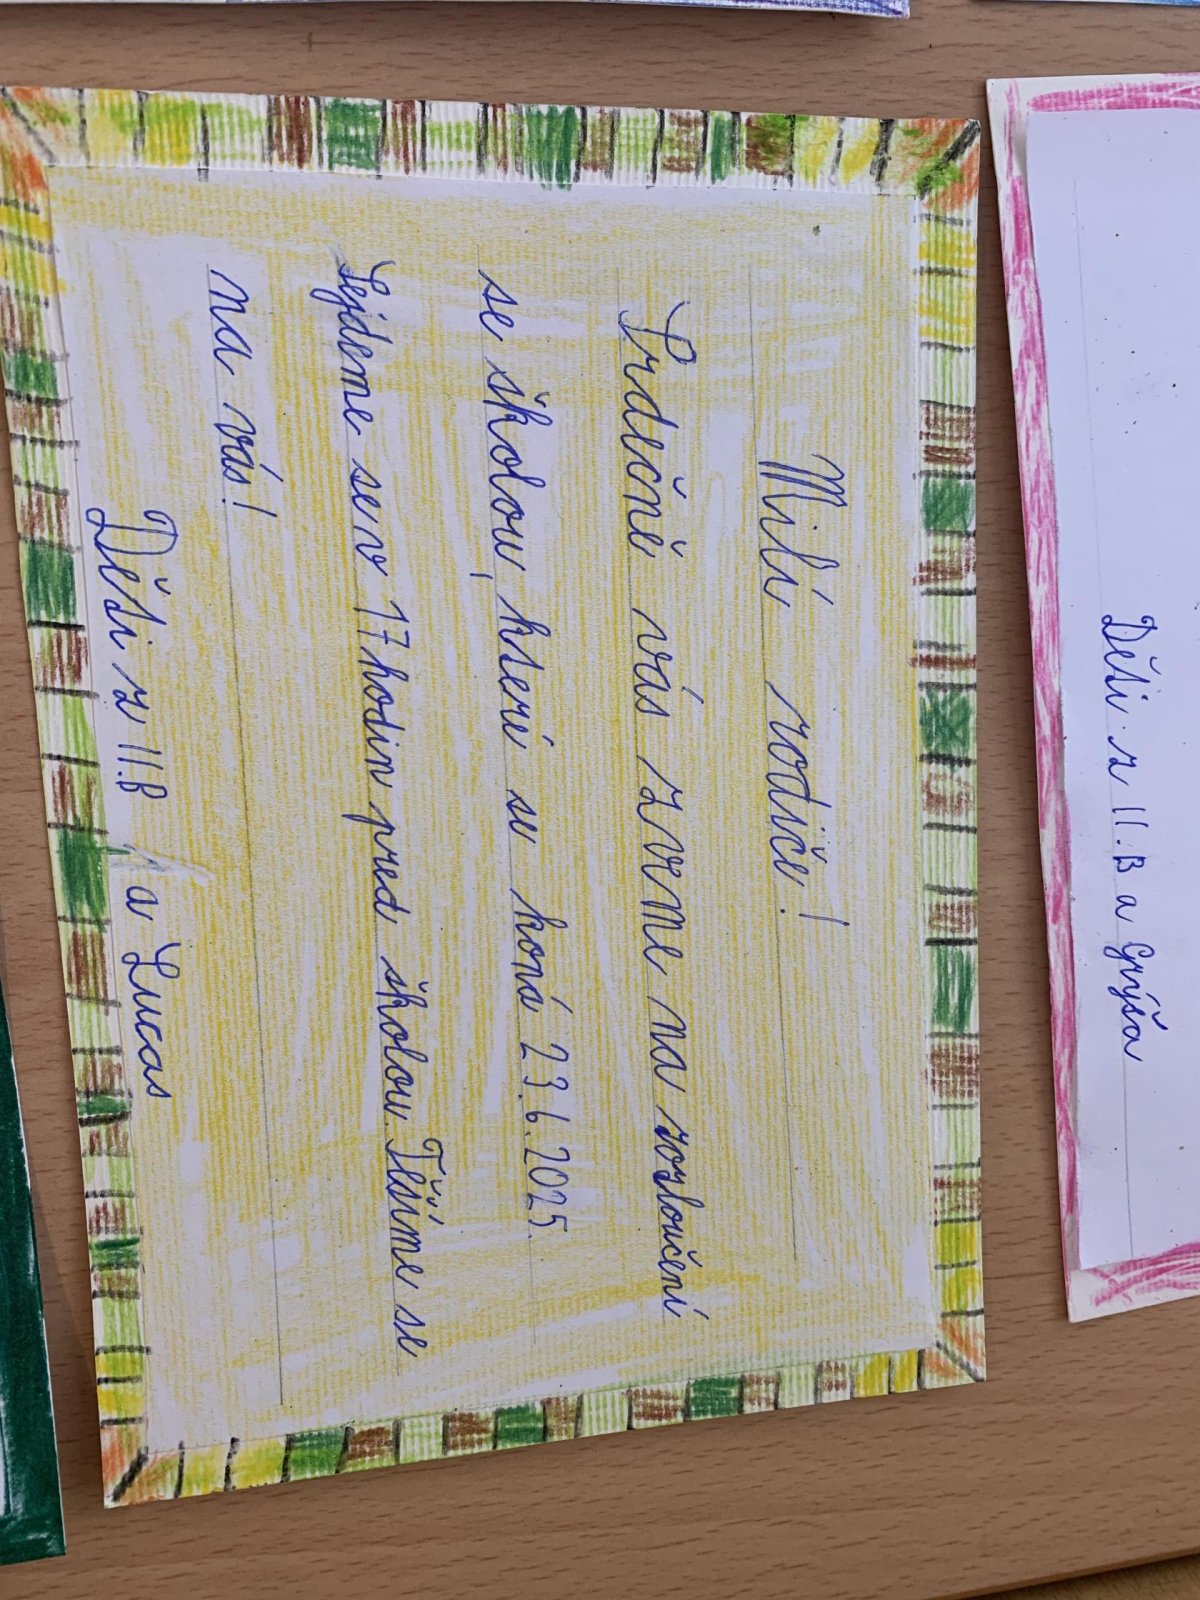 Milí rodiče!
Srdečně vás zveme na rozloučení
se školou, které se koná 23.6.2025.
Sejdeme se v 17 hodin pred školou. Těšíme se
na vás!
Děti z II.B a Lucas
Děti z II.B a Grýša